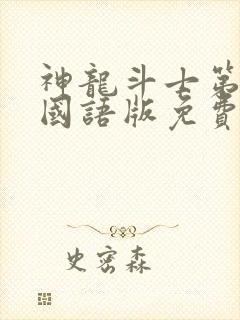 神龍斗士第
國語版免費
史密森